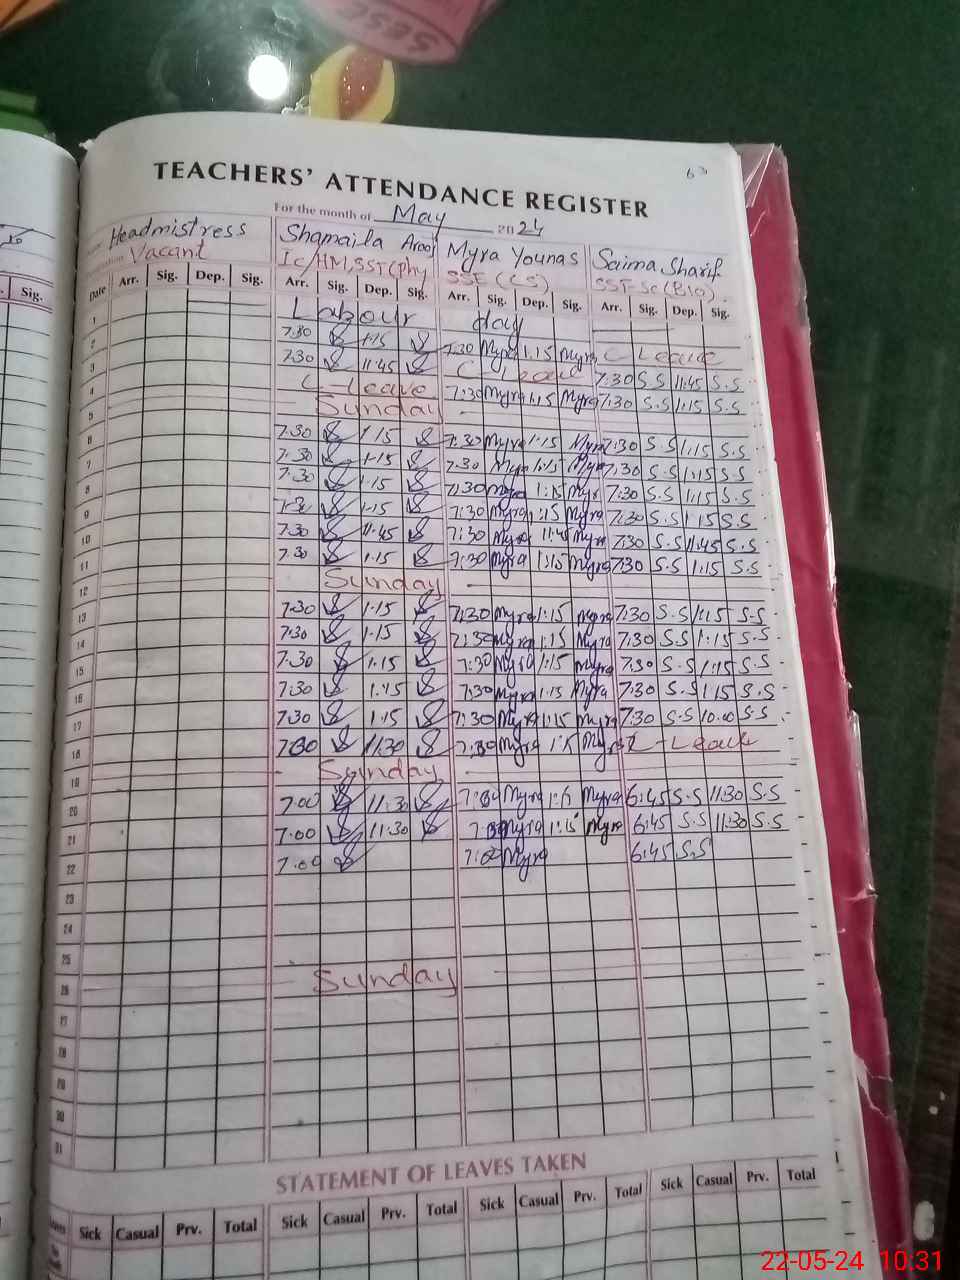 SESE
63
TEACHERS' ATTENDANCE REGISTER
For the month of May 2024
Headmistress Shamaila Arooj Myra Younas Saima Sharif
Vacant Ic/HM, SST(Phy SSE (CS) SST-Sc(Bio)
Sig. Date Arr. Sig. Dep. Sig. Arr. Sig. Dep. Sig. Arr. Sig. Dep. Sig. Arr. Sig. Dep. Sig.
1 Labour day
2 7:30 1:15 7:30 Myra 1:15 Myra C Leave
3 7:30 11:45 C Leave 7:30 S.S 11:45 S.S
4 C-Leave 7:30 Myra 1:15 Myra 7:30 S.S 1:15 S.S
5 Sunday
6 7:30 1:15 7:30 Myra 1:15 Myra 7:30 S.S 1:15 S.S
7 7:30 1:15 7:30 Myra 1:15 Myra 7:30 S.S 1:15 S.S
8 7:30 1:15 7:30 Myra 1:15 Myra 7:30 S.S 1:15 S.S
9 7:30 1:15 7:30 Myra 1:15 Myra 7:30 S.S 1:15 S.S
10 7:30 11:45 7:30 Myra 11:45 Myra 7:30 S.S 11:45 S.S
11 7:30 1:15 7:30 Myra 1:15 Myra 7:30 S.S 1:15 S.S
12 Sunday
13 7:30 1:15 7:30 Myra 1:15 Myra 7:30 S.S 1:15 S.S
14 7:30 1:15 7:30 Myra 1:15 Myra 7:30 S.S 1:15 S.S
15 7:30 1:15 7:30 Myra 1:15 Myra 7:30 S.S 1:15 S.S
16 7:30 1:15 7:30 Myra 1:15 Myra 7:30 S.S 1:15 S.S
17 7:30 1:15 7:30 Myra 1:15 Myra 7:30 S.S 10:00 S.S
18 7:30 11:30 7:30 Myra 1:15 Myra C-Leave
19 Sunday
20 7:00 11:30 Myra Myra 6:45 S.S 11:30 S.S
21 7:00 11:30 Myra 1:15 Myra 6:45 S.S 11:30 S.S
22 7:00 7:00 Myra 6:45 S.S
23
24
25
26 Sunday
27
28
29
30
31
STATEMENT OF LEAVES TAKEN
Sick Casual Prv. Total Sick Casual Prv. Total Sick Casual Prv. Total Sick Casual Prv. Total
22-05-24 10:31